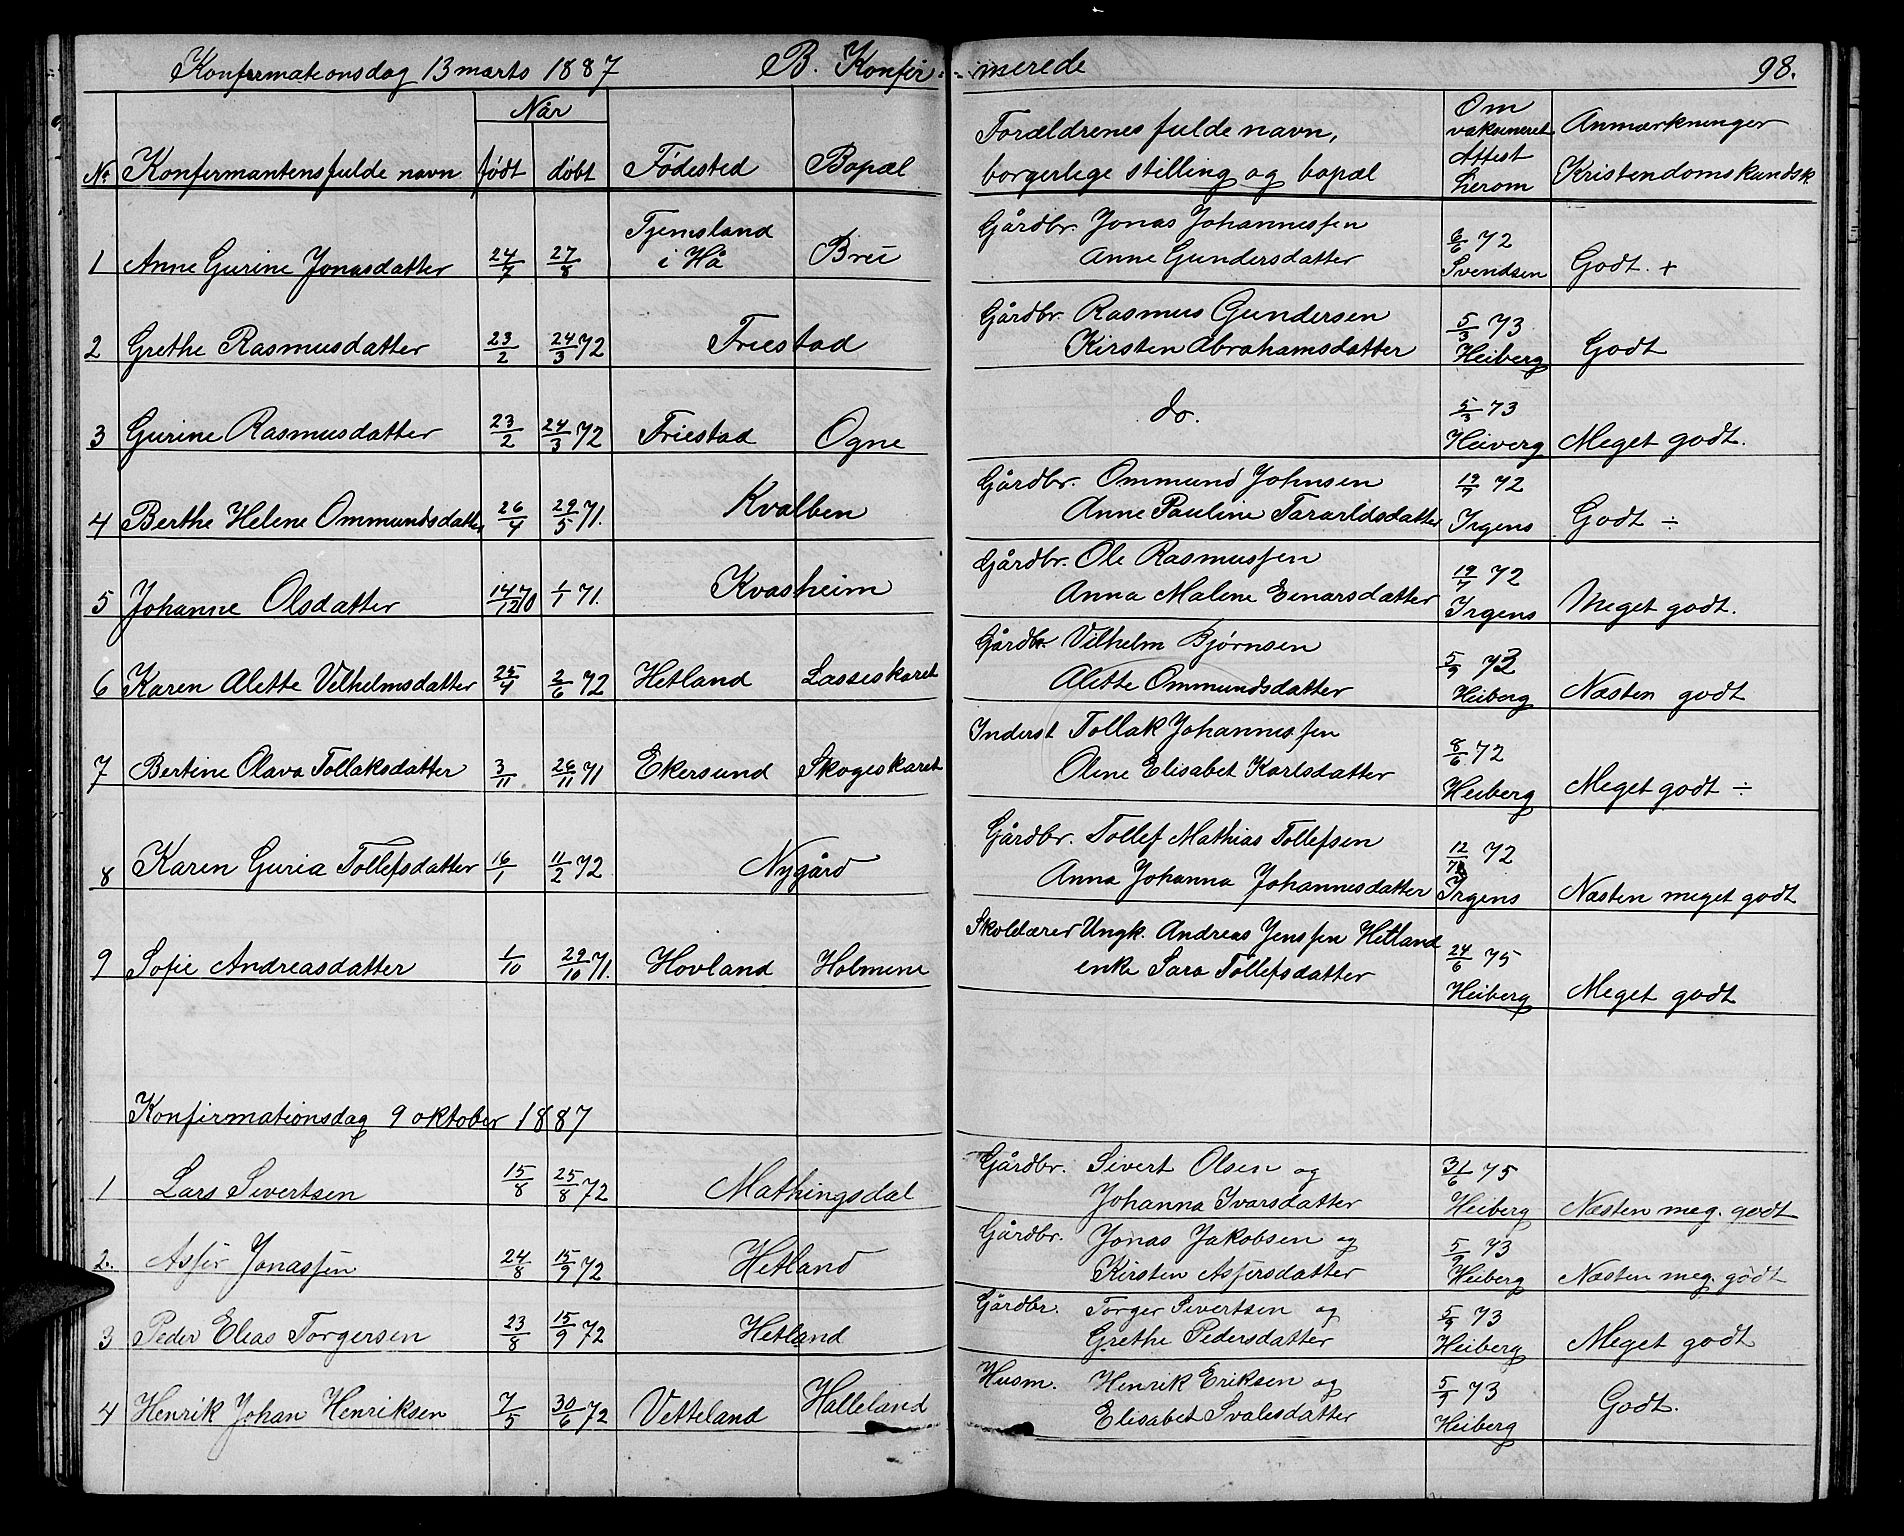 Konfirmationsdag 13 marts 1887 B. Konfir- -merede 98.
Når
Om vakcineret Attest herom
No Konfirmantens fulde navn født døbt Fødested Bopæl Forældrenes fulde navn, borgerlege stilling og bopæl Anmærkninger Kristendomskundsk.
1 Anne Gurine Jonasdatter 24/7 27/8 Tjemsland i Hå Brei Gårdbr. Jonas Johannessen 6/6 72
Anne Gundersdatter Svendsen Godt. +
2 Grethe Rasmusdatter 23/2 24/3 72 Friestad Gårdbr. Rasmus Gundersen 5/3 73
Kirsten Abrahamsdatter Heiberg Godt
3 Gurine Rasmusdatter 23/2 24/3 72 Friestad Ogne do. 5/3 73
Heiverg Meget godt.
4 Berthe Helene Ommundsdatter 26/4 29/5 71. Kvalben Gårdbr. Ommund Johnsen 19/7 72
Anne Pauline Tararldsdatter Irgens Godt ÷
5 Johanne Olsdatter 14/12 70 1/1 71. Kvasheim Gårdbr. Ole Rasmussen 19/7 72
Anna Malene Einarsdatter Irgens Meget godt.
6 Karen Alette Vilhelmsdatter 25/4 2/6 72 Hetland Lasseskaret Gårdbr. Vilhelm Bjørnsen 5/9 73
Alette Ommundsdatter Heiberg Næsten godt
7 Bertine Olava Tollaksdatter 3/11 26/11 71 Ekersund Skogeskaret Inderst Tollak Johannessen 8/6 72
Oline Elisabet Karlsdatter Heiberg Meget godt ÷
8 Karen Guria Tollefsdatter 16/1 11/2 72 Nygård Gårdbr. Tollef Mathias Tollefsen 12/7 72
Anna Johanna Johannesdatter Irgens Næsten meget godt
9 Sofie Andreasdatter 1/10 29/10 71. Hovland Holmene Skolelærer Ungk. Andreas Jenssen Hetland 24/6 75
enke Sara Tollefsdatter Heiberg Meget godt
Konfirmationsdag 9 oktober 1887
1 Lars Sivertsen 15/8 25/8 72 Mathingsdal Gårdbr. Sivert Olsen og 31/6 75
Johanna Ivarsdatter Heiberg Næsten meg. godt
2. Asser Jonassen 24/8 15/9 72 Hetland Gårdbr. Jonas Jakobsen og 5/9 73
Kirsten Assersdatter Heiberg Næsten meg. godt
3 Peder Elias Torgersen 23/8 15/9 72 Hetland Gårdbr. Torger Sivertsen og 5/9 73
Grethe Pedersdatter Heiberg Meget godt
4 Henrik Johan Henriksen 7/5 30/6 72 Vetteland Halleland Husm. Henrik Eriksen og 5/9 73
Elisabet Svalesdatter Heiberg Godt.